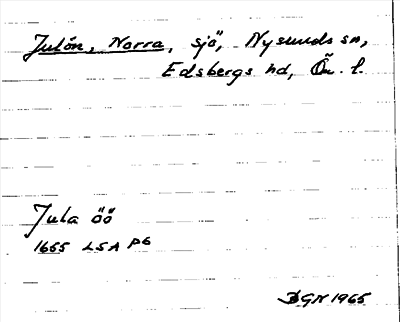 Julön, Norra, sjö, Nysunds sn,
Edsbergs hd, Ör. l.
Jula öö
1655 LSA P6
BGN 1965